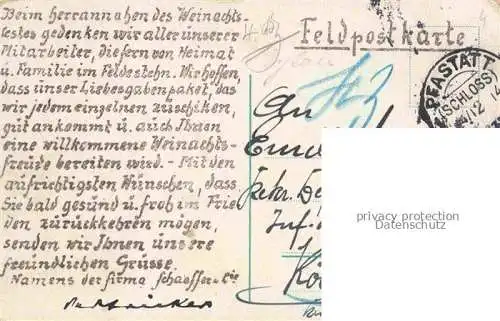 Beim herrannahen des Weinachts-
festes gedenken wir aller unserer
Mitarbeiter, die fern von Heimat
u. Familie im Felde stehn. Wir hoffen,
dass unser Liebesgabenpaket, das
wir jedem einzelnen zuschiken,
gut ankommt u. auch Ihnen
eine willkommene Weinachts-
freude bereiten wird. - Mit den
aufrichtigsten Wünschen, dass
Sie bald gesund u. froh im Frie
den zurückkehren mögen,
senden wir Ihnen unsere
freundlichen Grüsse.
Namens der firma Schaeffer & Cie
Feldpostkarte
PFASTATT
(SCHLOSS)
An
privacy protection
Datenschutz